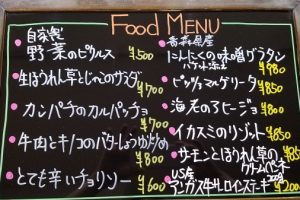 Food MENU
自家製
野菜のピクルス ¥500
生ほうれん草とじゃこのサラダ ¥700
カンパチのカルパッチョ ¥700
牛肉とキノコのバターしょうゆ炒め ¥800
とても辛いチョリソー ¥600
青森県産
にんにくの味噌グラタン
バケット添え ¥980
ピッツァマルゲリータ ¥850
海老のアヒージョ ¥800
イカスミのリゾット ¥850
サーモンとほうれん草の
クリームペンネ ¥850
US産
アンガス牛サーロインステーキ
200g